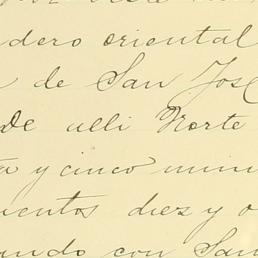 dero oriental
de San José
De alli Norte
ta y cinco minu
cientos diez y o
ando con San